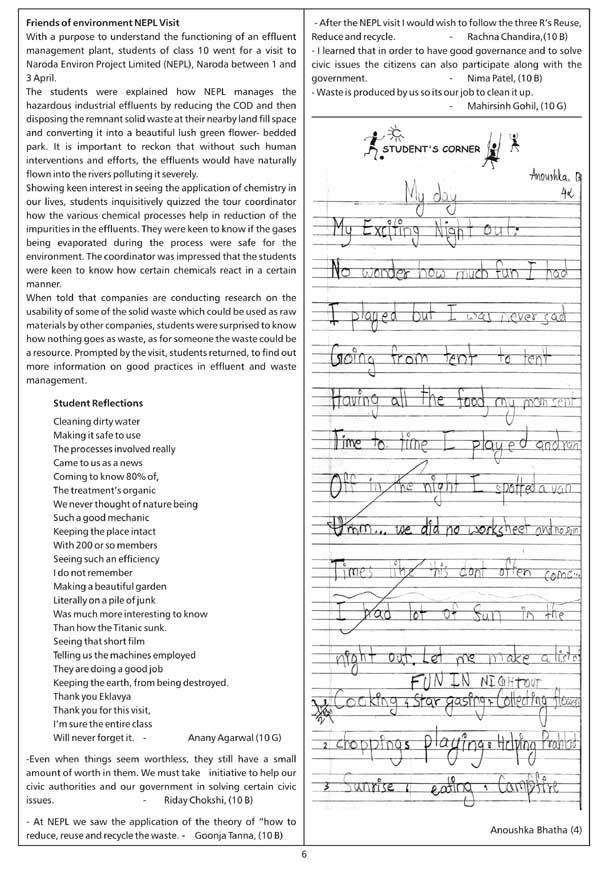 Friends of environment NEPL Visit
With a purpose to understand the functioning of an effluent
management plant, students of class 10 went for a visit to
Naroda Environ Project Limited (NEPL), Naroda between 1 and
3 April.
The students were explained how NEPL manages the
hazardous industrial effluents by reducing the COD and then
disposing the remnant solid waste at their nearby land fill space
and converting it into a beautiful lush green flower- bedded
park. It is important to reckon that without such human
interventions and efforts, the effluents would have naturally
flown into the rivers polluting it severely.
Showing keen interest in seeing the application of chemistry in
our lives, students inquisitively quizzed the tour coordinator
how the various chemical processes help in reduction of the
impurities in the effluents. They were keen to know if the gases
being evaporated during the process were safe for the
environment. The coordinator was impressed that the students
were keen to know how certain chemicals react in a certain
manner.
When told that companies are conducting research on the
usability of some of the solid waste which could be used as raw
materials by other companies, students were surprised to know
how nothing goes as waste, as for someone the waste could be
a resource. Prompted by the visit, students returned, to find out
more information on good practices in effluent and waste
management.
Student Reflections
Cleaning dirty water
Making it safe to use
The processes involved really
Came to us as a news
Coming to know 80% of,
The treatment's organic
We never thought of nature being
Such a good mechanic
Keeping the place intact
With 200 or so members
Seeing such an efficiency
I do not remember
Making a beautiful garden
Literally on a pile of junk
Was much more interesting to know
Than how the Titanic sunk.
Seeing that short film
Telling us the machines employed
They are doing a good job
Keeping the earth, from being destroyed.
Thank you Eklavya
Thank you for this visit,
I'm sure the entire class
Will never forget it. - Anany Agarwal (10 G)
-Even when things seem worthless, they still have a small
amount of worth in them. We must take initiative to help our
civic authorities and our government in solving certain civic
issues. - Riday Chokshi, (10 B)
- At NEPL we saw the application of the theory of "how to
reduce, reuse and recycle the waste. - Goonja Tanna, (10 B)
- After the NEPL visit I would wish to follow the three R's Reuse,
Reduce and recycle. - Rachna Chandira,(10 B)
- I learned that in order to have good governance and to solve
civic issues the citizens can also participate along with the
government. - Nima Patel, (10 B)
- Waste is produced by us so its our job to clean it up.
- Mahirsinh Gohil, (10 G)
STUDENT'S CORNER
Anoushka. B
4
My day
My Exciting Night out:
No wonder how much fun I had
I played but I was never sad
Going from tent to tent
Having all the food, my mom sent
Time to time I played and ran
Off in the night I spotted a van
Umm... we did no worksheet and no sum
Times like this dont often come...
I had lot of Sun in the
night out. Let me make a list of
FUN IN NIGHTOUT
Cooking, Star gasing, Collecting flowers
2 choppings playing, Helping
3 Sunrise, eating, Campfire
Anoushka Bhatha (4)
6